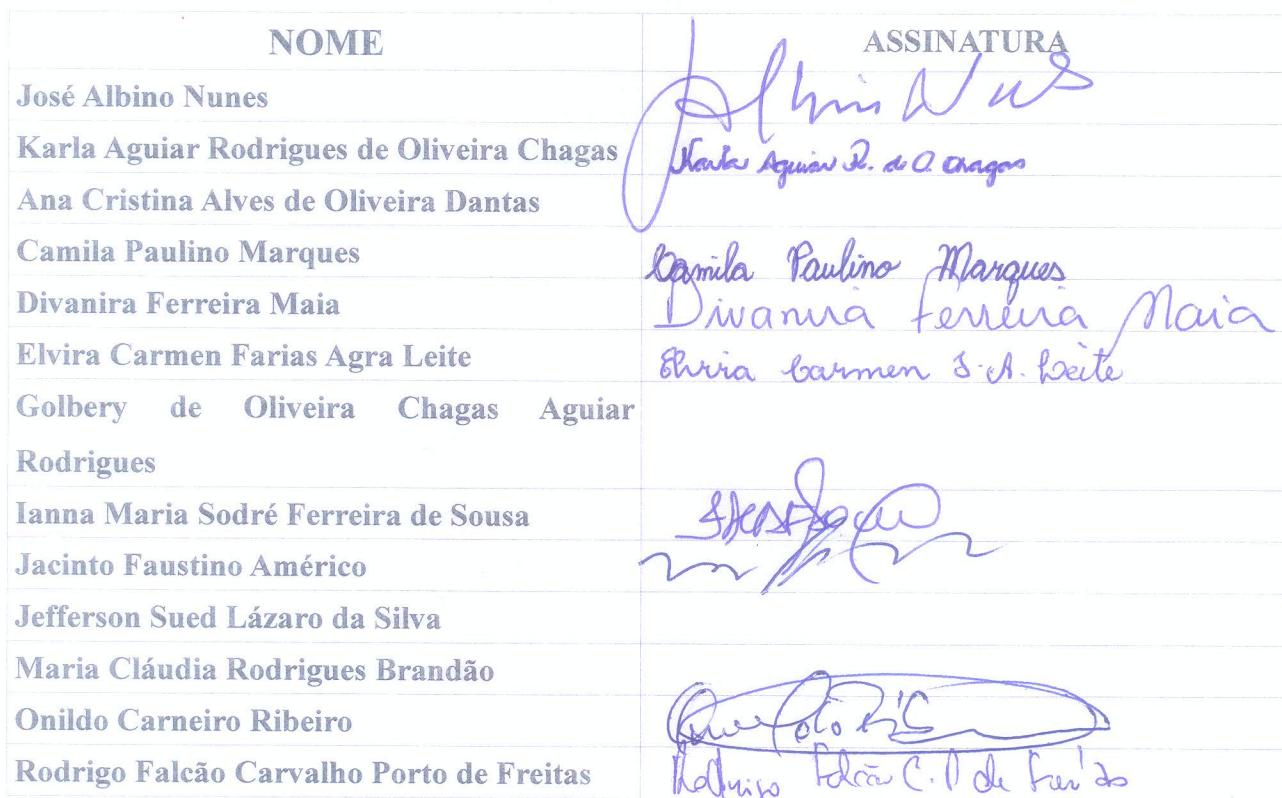 NOME ASSINATURA
José Albino Nunes
Karla Aguiar Rodrigues de Oliveira Chagas Karla Aguiar R. de O. Chagas
Ana Cristina Alves de Oliveira Dantas
Camila Paulino Marques Camila Paulino Marques
Divanira Ferreira Maia Divanira Ferreira Maia
Elvira Carmen Farias Agra Leite Elvira Carmen F. A. Leite
Golbery de Oliveira Chagas Aguiar
Rodrigues
Ianna Maria Sodré Ferreira de Sousa
Jacinto Faustino Américo
Jefferson Sued Lázaro da Silva
Maria Cláudia Rodrigues Brandão
Onildo Carneiro Ribeiro
Rodrigo Falcão Carvalho Porto de Freitas Rodrigo Falcão C. P de Freitas